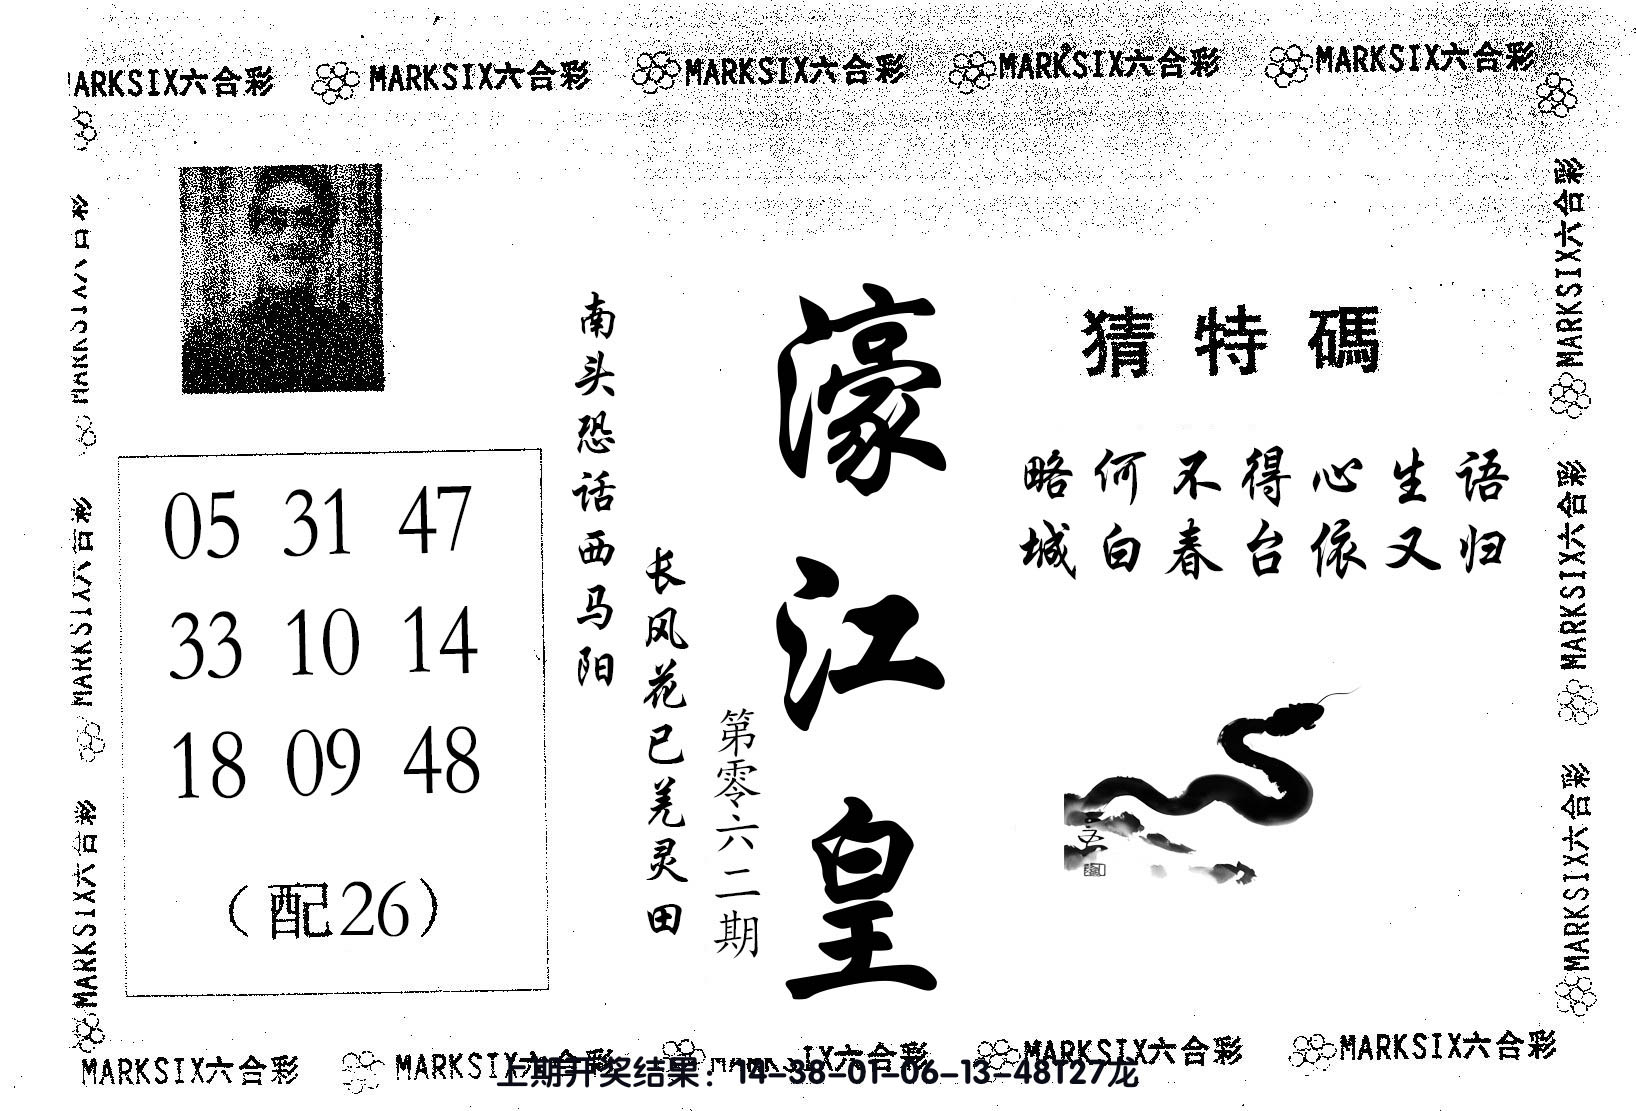 MARKSIX六合彩 MARKSIX六合彩 MARKSIX六合彩 MARKSIX六合彩 MARKSIX六合彩
MARKSIX六合彩
MARKSIX六合彩
MARKSIX六合彩
猜特碼
略何不得心生语
城白春台依又归
濠江皇
第零六二期
长风花已羌灵田
南头恐话西马阳
05 31 47
33 10 14
18 09 48
(配26)
MARKSIX六合彩
MARKSIX六合彩
MARKSIX六合彩
MARKSIX六合彩 MARKSIX六合彩 IX六合彩 MARKSIX六合彩 MARKSIX六合彩
上期开奖结果：14-38-01-06-13-48T27龙